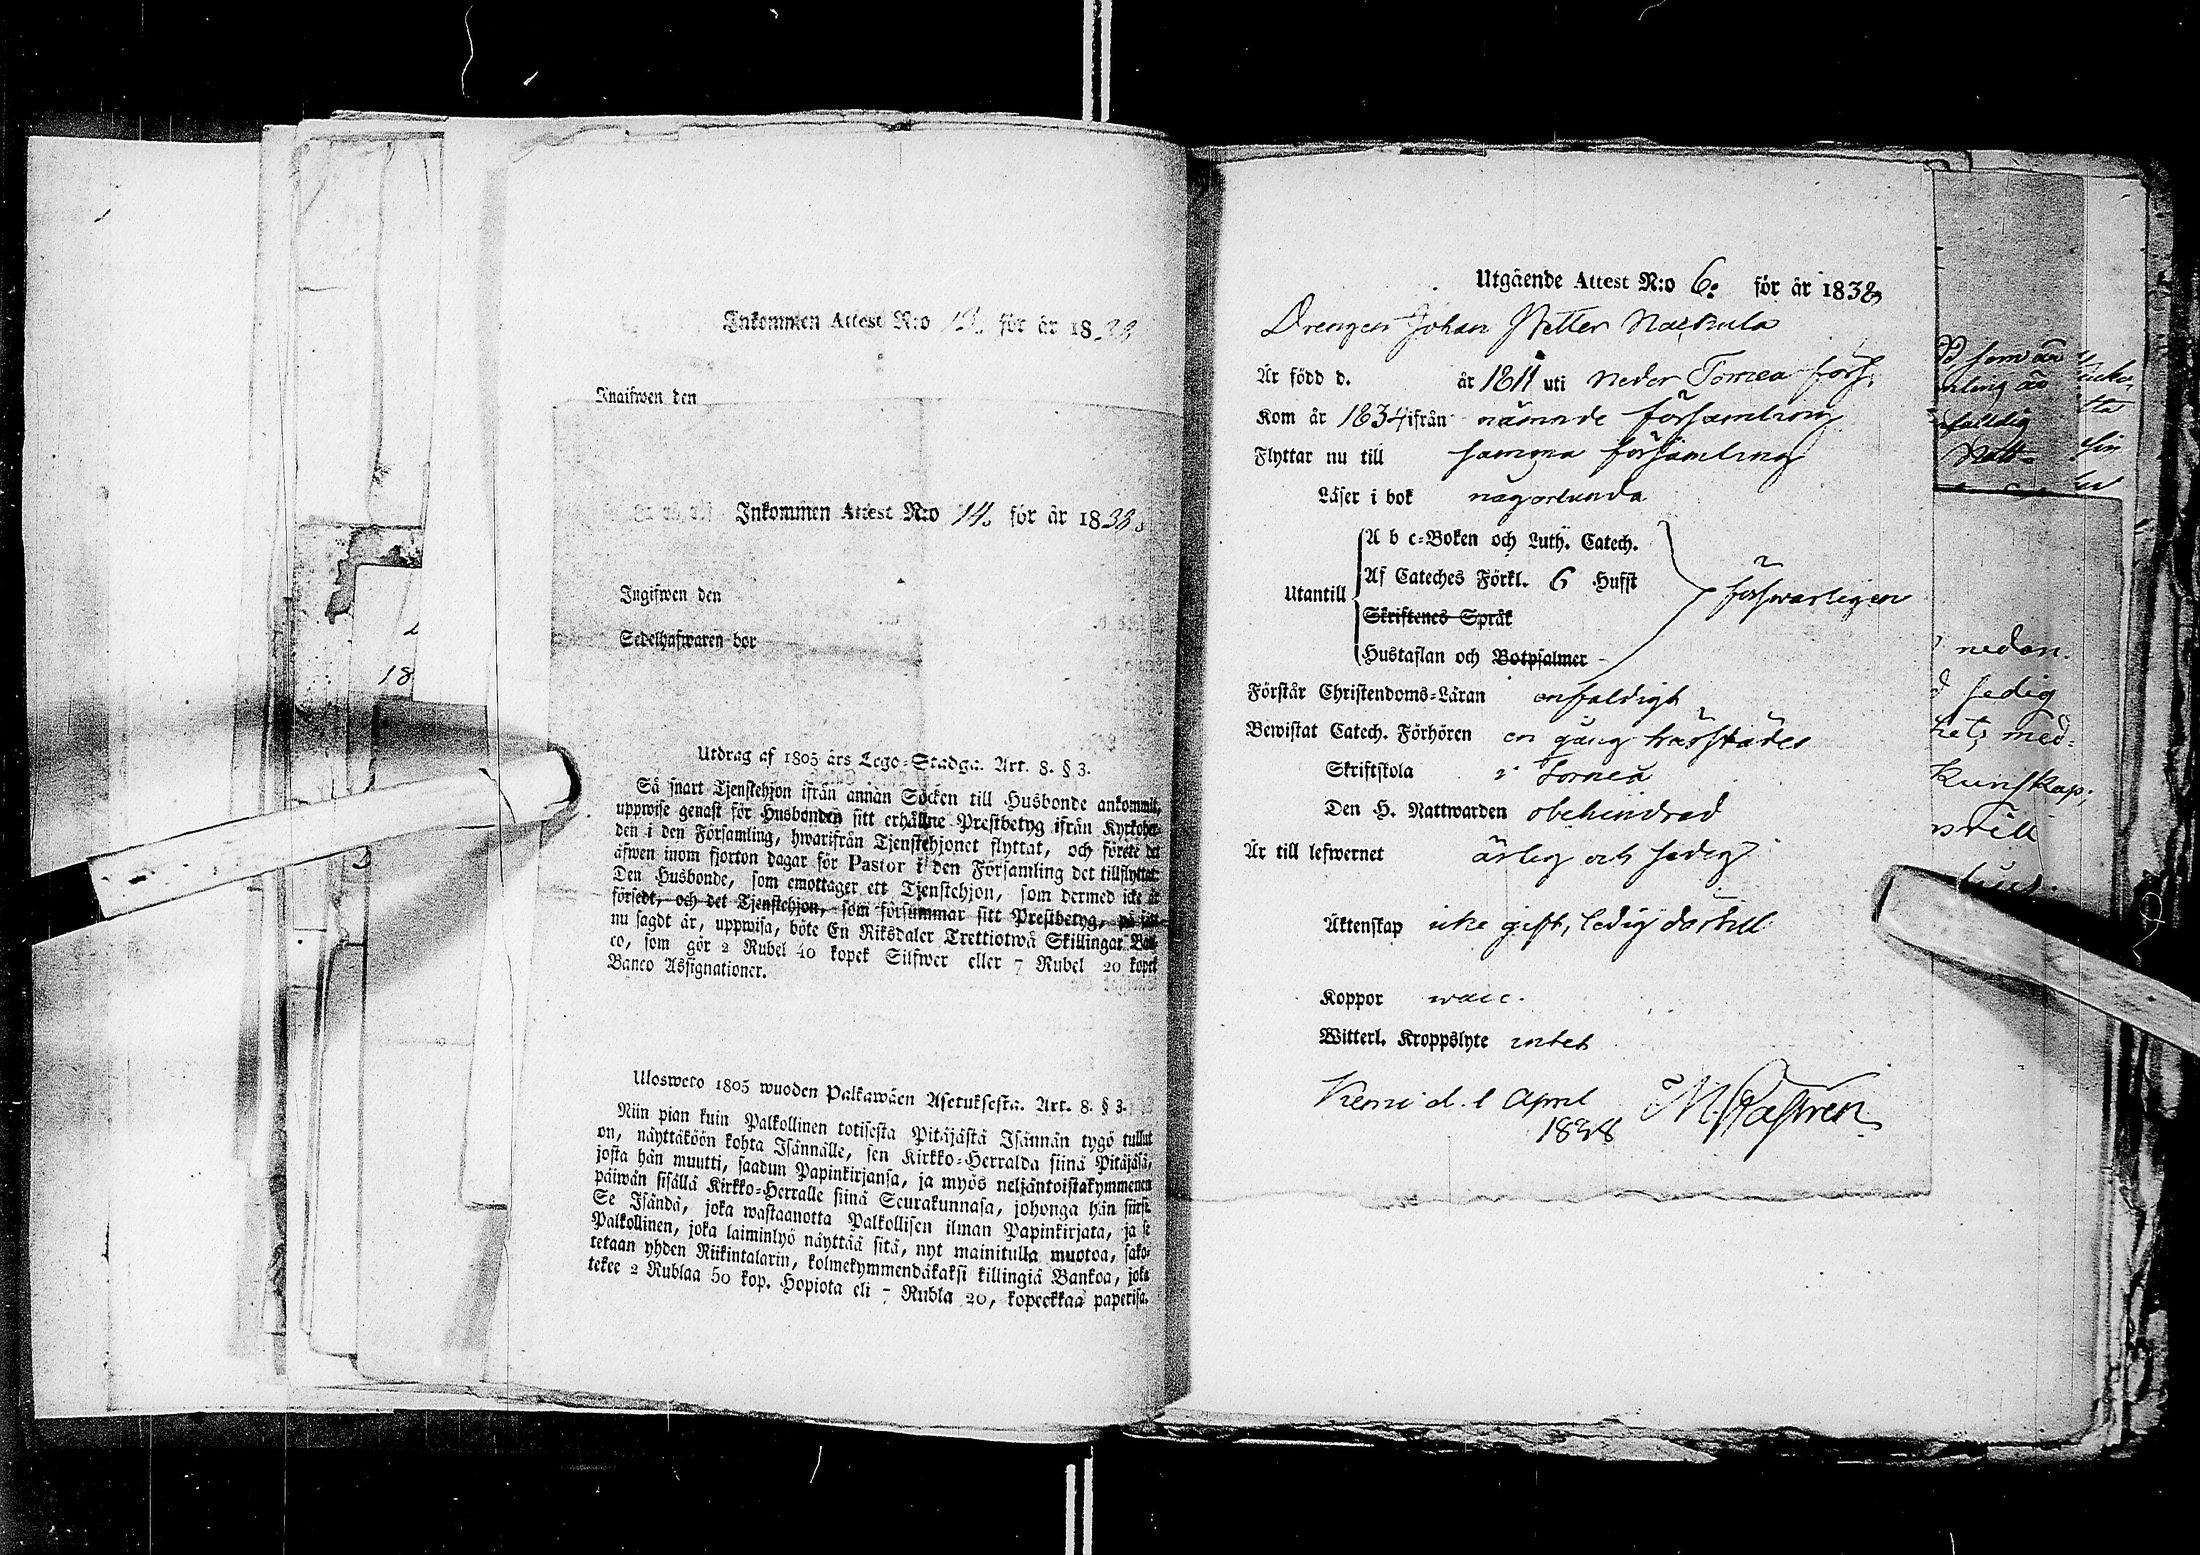 Inkommen Attest N:o 13. för år 1838
Ingifwen den
Inkommen Attest N:o 14. för år 1838.
Ingifwen den
Sedelhafwaren bor
Utdrag af 1805 års Lego-Stadga. Art. 8. § 3.
Så snart Tjenstehjon ifrån annan Socken till Husbonde ankommit,
uppwise genast för Husbonden sitt erhållne Prestbetyg ifrån Kyrkoher-
den i den Församling, hwarifrån Tjenstehjonet flyttat, och förete det
äfwen inom fjorton dagar för Pastor i den Församling det tillflyttat.
Den Husbonde, som emottager ett Tjenstehjon, som dermed icke är
försedt, och det Tjenstehjon, som försummar sitt Prestbetyg, på sätt
nu sagdt är, uppwisa, böte En Riksdaler Trettiotwå Skillingar Ban-
co, som gör 2 Rubel 40 kopek Silfwer eller 7 Rubel 20 kopek
Banco Assignationer.
Ulosweto 1805 wuoden Palkawäen Asetuksesta. Art. 8. § 3.
Niin pian kuin Palkollinen totisesta Pitäjästä Isännän tygö tullut
on, näyttäköön kohta Isännälle, sen Kirkko-Herralda siinä Pitäjäsä,
josta hän muutti, saadun Papinkirjansa, ja myös neljäntoistakymmenen
päiwän sisällä Kirkko-Herralle siinä Seurakunnasa, johonga hän siirst.
Se Isändä, joka wastaanotta Palkollisen ilman Papinkirjata, ja se
Palkollinen, joka laiminlyö näyttää sitä, nyt mainitulla muotoa, sako-
tetaan yhden Riikintalarin, kolmekymmendäkaksi killingiä Bankoa, joka
tekee 2 Rublaa 50 kop. Hopiota eli 7 Rubla 20, kopeekkaa paperisa.
Utgående Attest N:o 6. för år 1838
Drengen Johan Petter
Är född d. år 1811 uti Neder Torneå förs.
Kom år 1834 ifrån nämnde församling
Flyttar nu till samma församling
Läser i bok någorlunda
A b c-Boken och Luth. Catech.
Utantill Af Cateches Förkl. 6 Hufst försvarligen
Skriftenes Språk
Hustaflan och Botpsalmer
Förstår Christendoms-Läran enfaldigt
Bewistat Catech. Förhören en gång härstädes
Skriftskola i Torneå
Den H. Nattwarden obehindrad
Är till lefwernet ärlig och sedig
Äktenskap icke gift, ledig dertill
Koppor
Witterl. Kroppslyte intet
Kemi d. 1 April
1838 M. Castren
nedan.
sedig
het, med-
Kunskap;